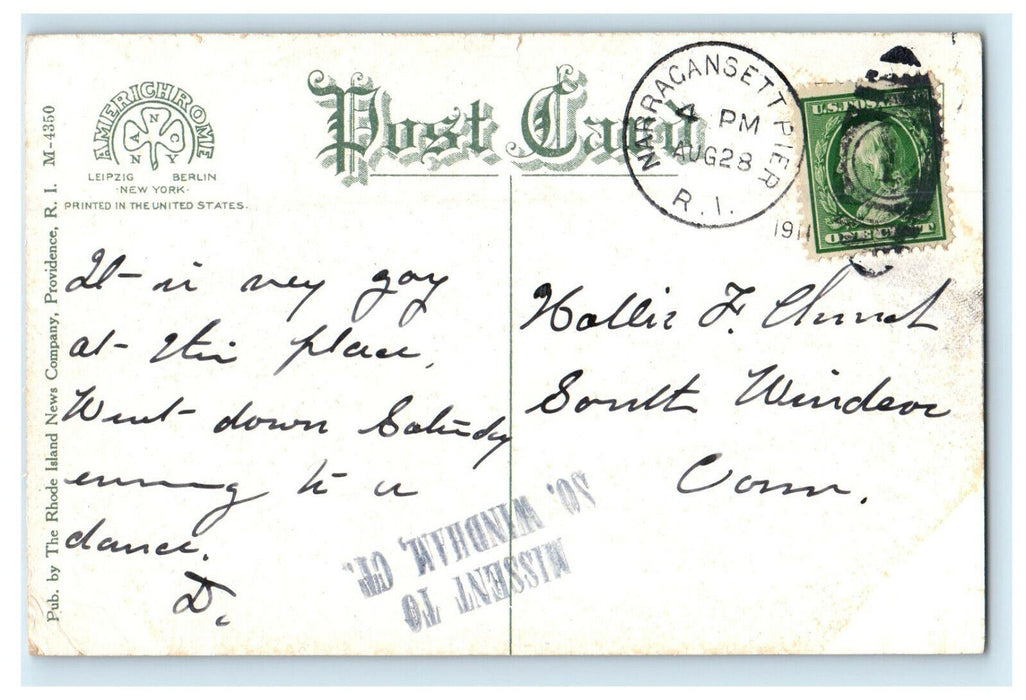 Post Card
AMERICHROME
A N C
N Y
LEIPZIG BERLIN
· NEW YORK ·
PRINTED IN THE UNITED STATES.
Pub. by The Rhode Island News Company, Providence, R. I. M-4350
NARRAGANSETT PIER
4 PM
AUG 28
R. I.
1911
U.S. POSTAGE
ONE CENT
It is very gay
at this place.
Went down Saturday
evening to a
dance.
D.
Hollis F. Church
South Windsor
Conn.
MISSENT TO
SO. WINDHAM, CT.